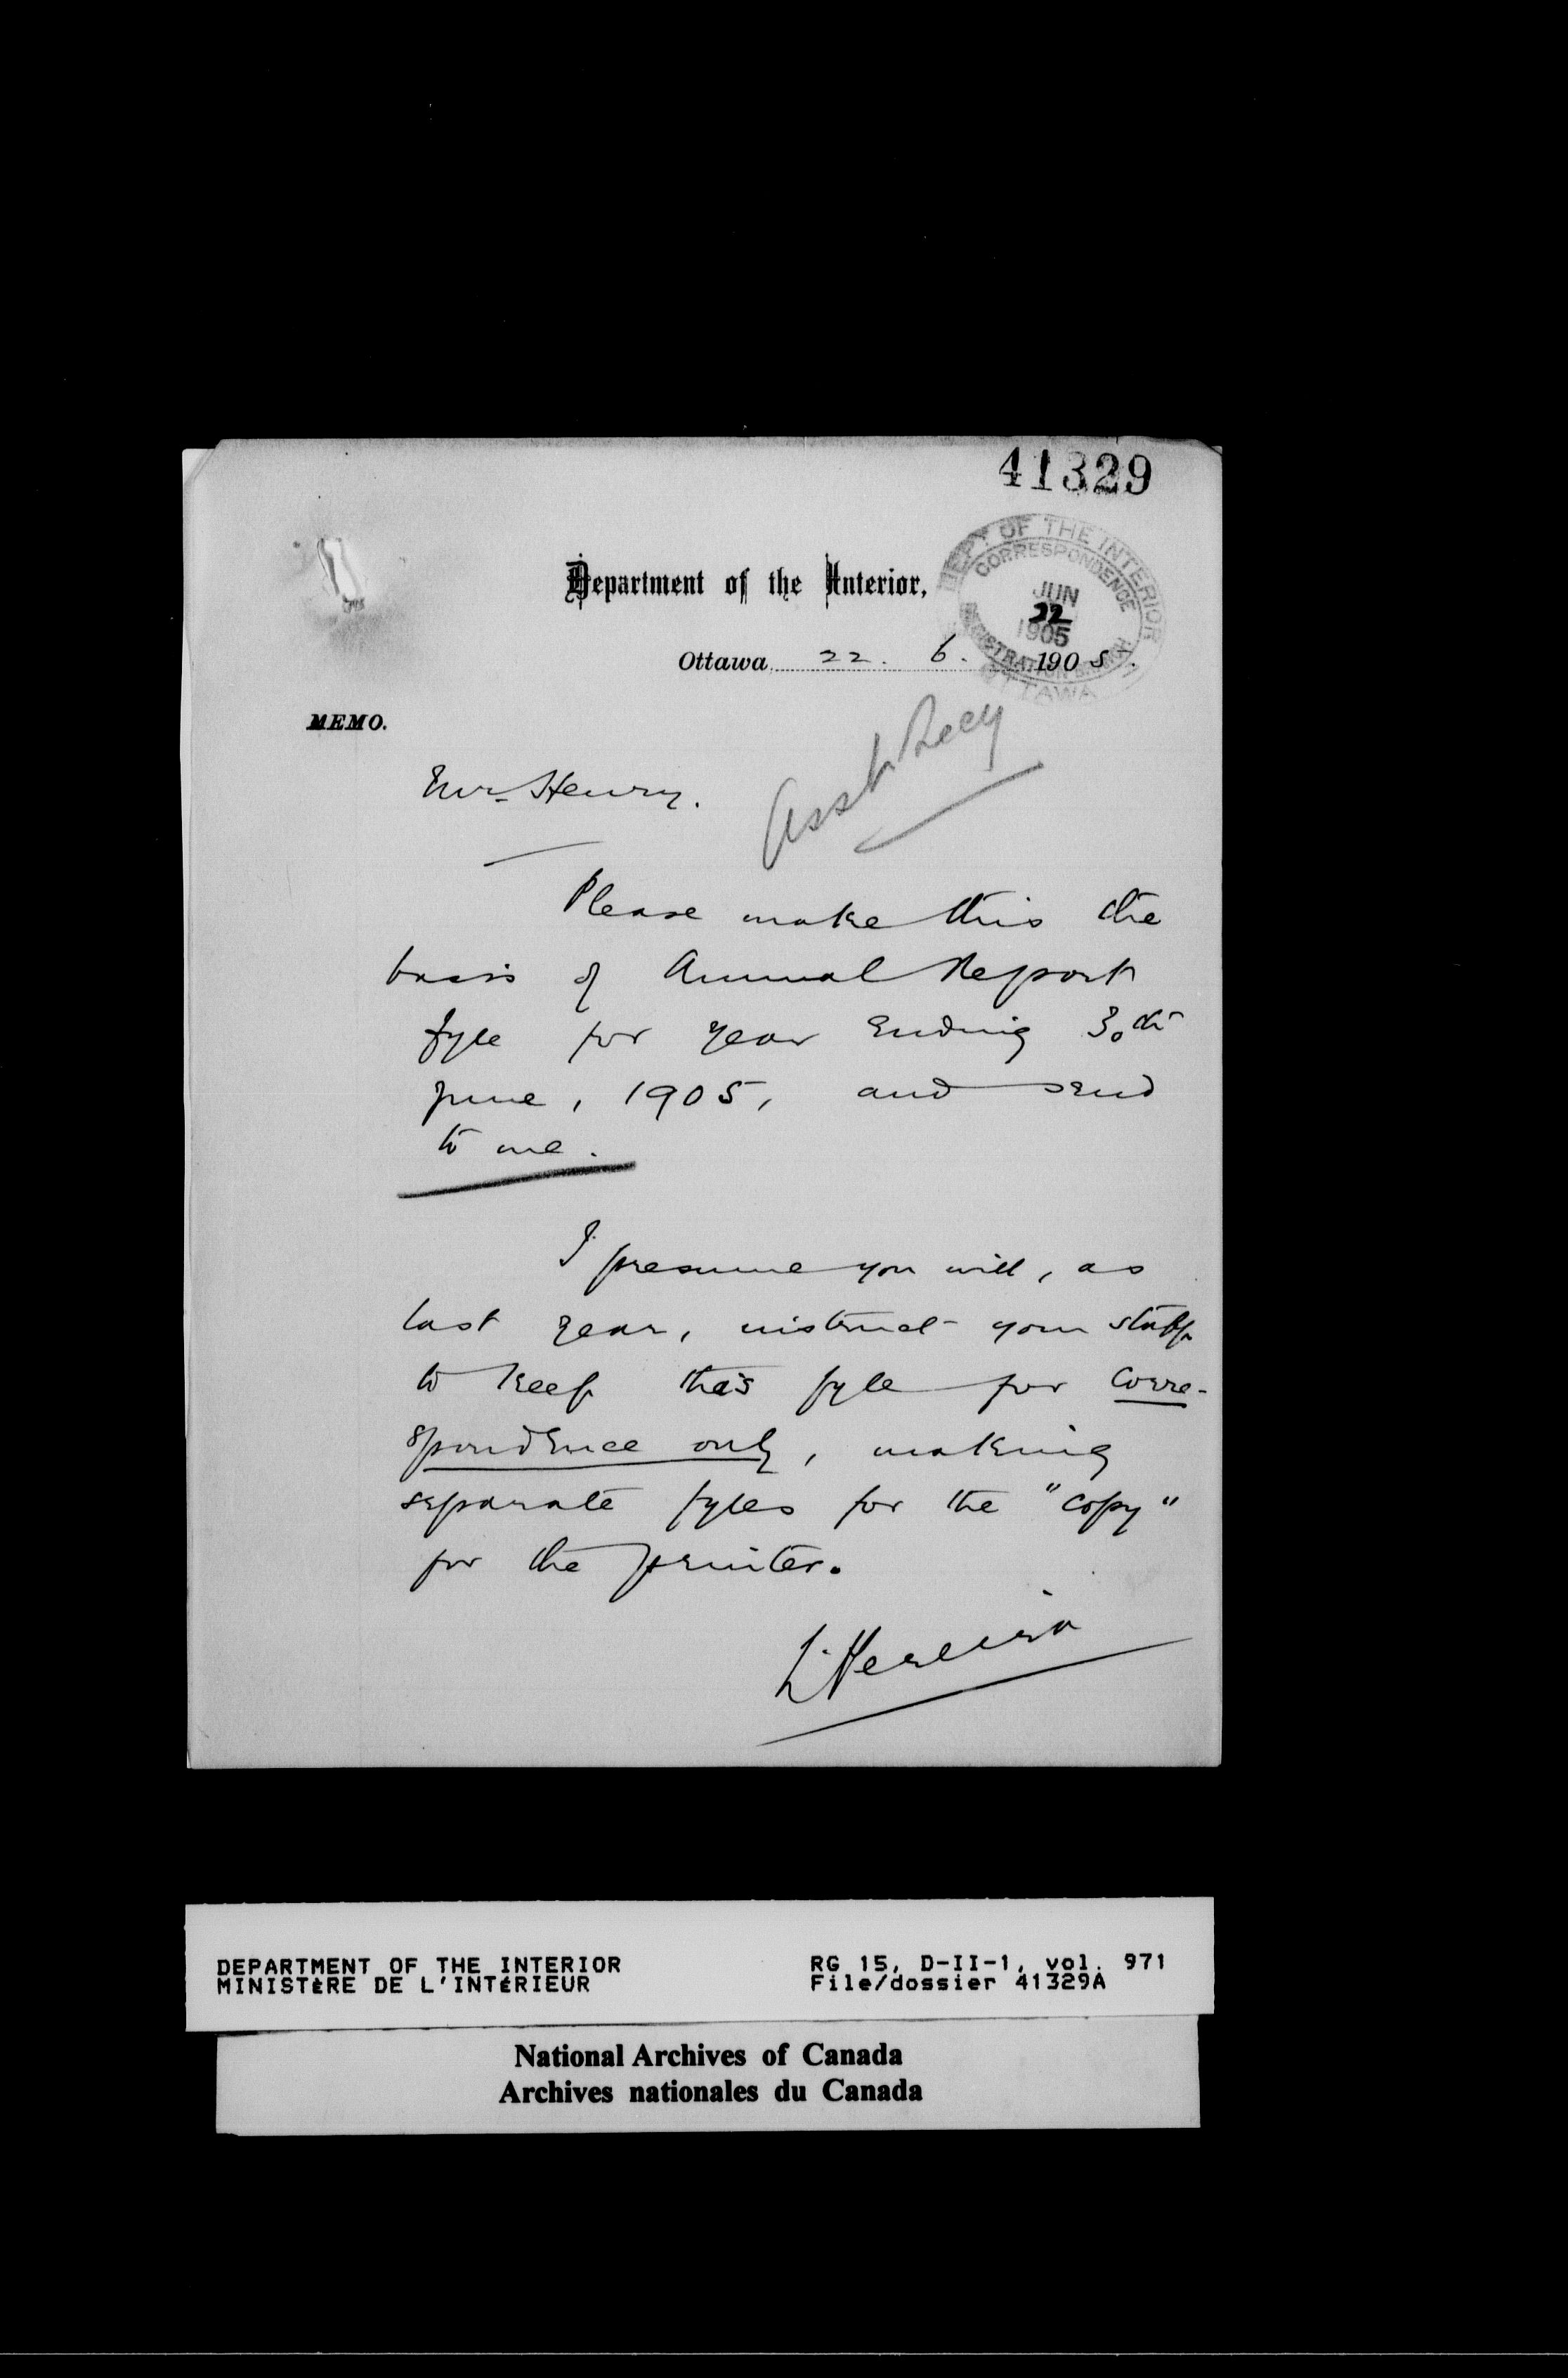 41329
DEPT OF THE INTERIOR
CORRESPONDENCE
JUN
22
1905
REGISTRATION BRANCH
OTTAWA
Department of the Interior,
Ottawa 22. 6. 1905.
MEMO.
Asst Secy
Mr. Henry.
Please make this the
basis of Annual Report
fyle for year ending 30th
June, 1905, and send
to me.
I presume you will, as
last year, instruct your staff
to keep this fyle for corre-
spondence only, making
separate fyles for the "copy"
for the printer.
L Pereira
DEPARTMENT OF THE INTERIOR
MINISTÈRE DE L'INTÉRIEUR
RG 15, D-II-1, vol. 971
File/dossier 41329A
National Archives of Canada
Archives nationales du Canada